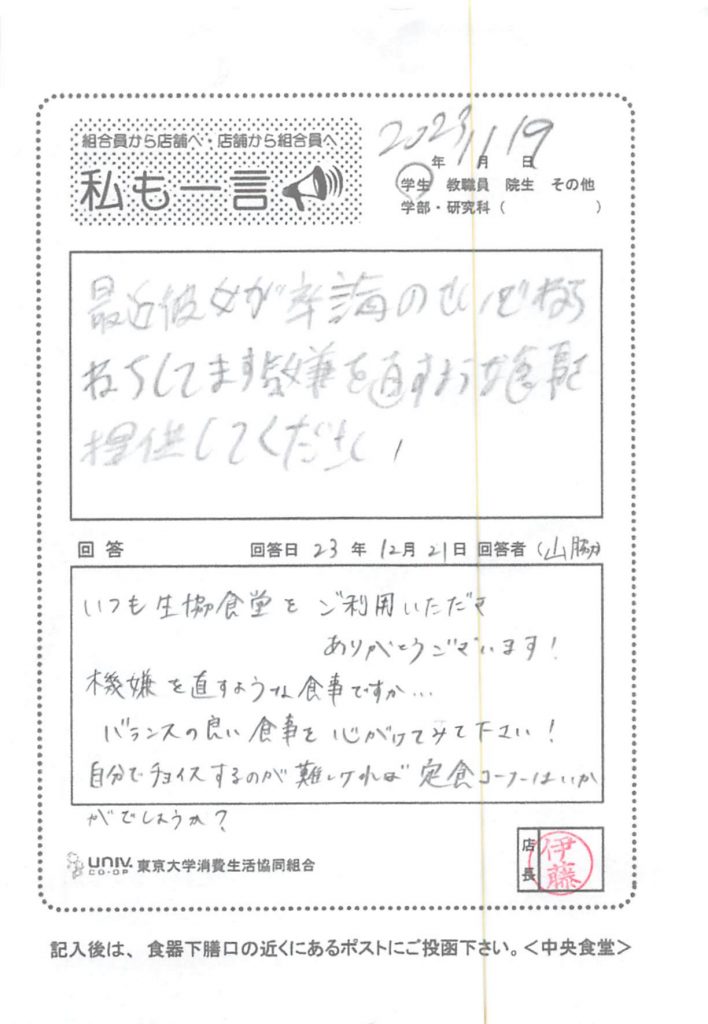 組合員から店舗へ・店舗から組合員へ
私も一言
2023年11月19日
学生 教職員 院生 その他
学部・研究科( )
最近彼女が卒論のせいでいら
いらしてます。機嫌を直すような食事を
提供してください
回答 回答日 23年12月21日 回答者(山脇)
いつも生協食堂をご利用いただき
ありがとうございます!
機嫌を直すような食事ですか…
バランスの良い食事を心がけてみて下さい!
自分でチョイスするのが難しければ定食コーナーはいか
がでしょうか?
UNIV.
CO-OP 東京大学消費生活協同組合
店長 伊藤
記入後は、食器下膳口の近くにあるポストにご投函下さい。<中央食堂>